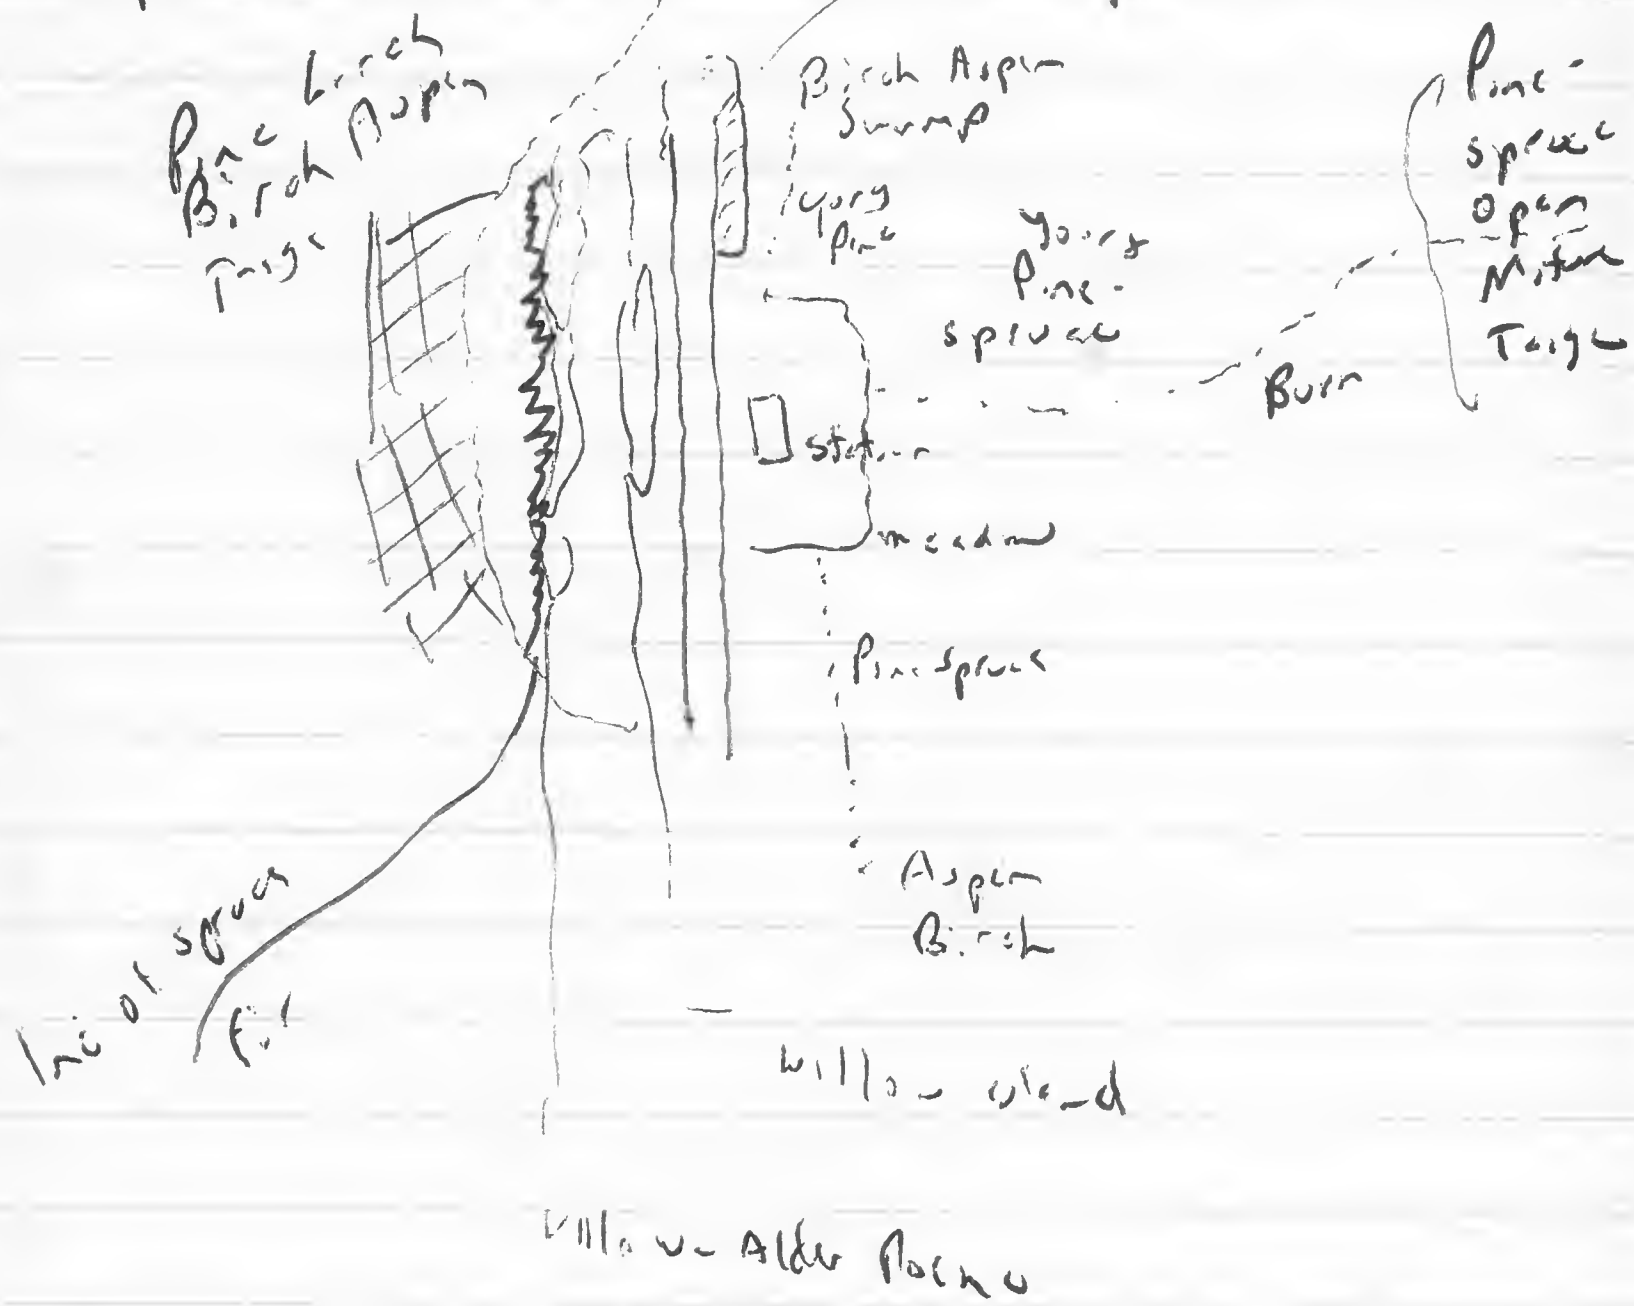 Larch
Aspen
Pine
Birch
Taiga
Birch Aspen
Swamp
young
Pine
young
Pine -
spruce
Pine -
spruce
open
Mature
Taiga
Burn
Station
meadow
Pine spruce
Aspen
Birch
line of spruce
Fir
Willow island
Willow - Alder Poema